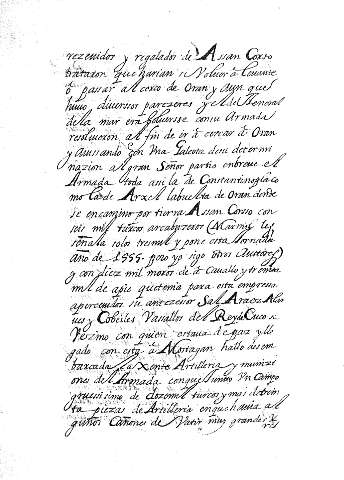 rezeuidos y regalados de Assan Corso
trataron que harian si Voluer à Leuante
ò passar al cerco de Oran y Aun que
huuo, diuersos parezeres y el del General
de la mar era boluersse con su Armada
resoluieron al fin de ir à cercar à Oran
y Auissando con Vna Galeota dessi determi
nazion al gran Señor partio enbreue el
Armada toda assi la de Constantinopla co
mo la de Arxel la buelta de Oran donde
se encamino por tierra Assan Corso con
seis mil turcos arcabuzeros (Marmol les
señala solo tresmil y pone esta Jornada
año de 1555. pero yo sigo otros Auctores)
y con diez mil moros de à Cauallo y treinta
mil de apie que tenia para esta empressa
aperceuidos su antezesor Sal Araez Alar
ues y Cobeiles Vasallos del Rey de Cuco su
Vezino con quien estaua de paz y lle
gado con esto à Mostagan hallo desem
barcada la Xente Artilleria y munizi
ones del Armada con que Junto Vn Campo
gruessissimo de dozemil turcos y mas de trein
ta piezas de Artilleria en que hauia al
gunos Cañones de Vatir muy grandes